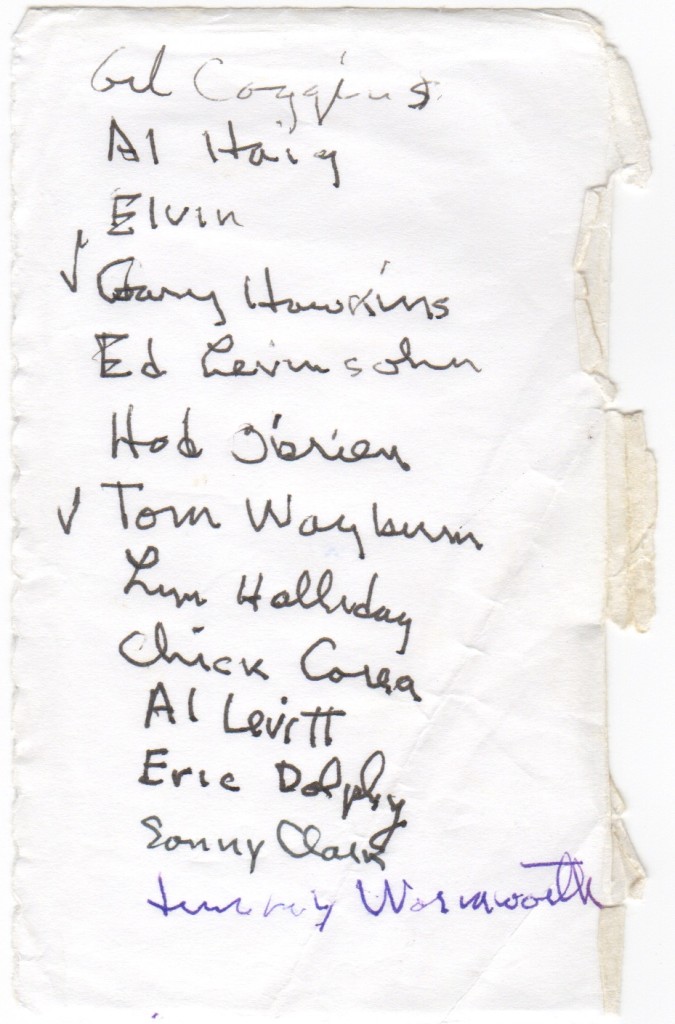 Gil Coggins
Al Haig
Elvin
✓ Gary Hawkins
Ed Levinsohn
Hod O'Brien
✓ Tom Wayburn
Lyn Halliday
Chick Corea
Al Levitt
Eric Dolphy
Sonny Clark
Wormworth